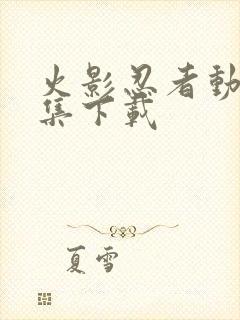 火影忍者動
集下載
夏雪